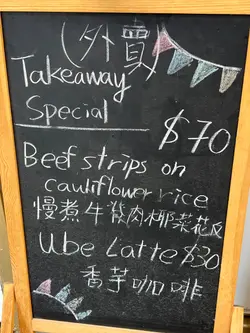 (外賣)
Takeaway
Special
$70
Beef strips on
cauliflower rice
慢煮牛肉椰菜花反
Ube Latte $30
香芋咖啡